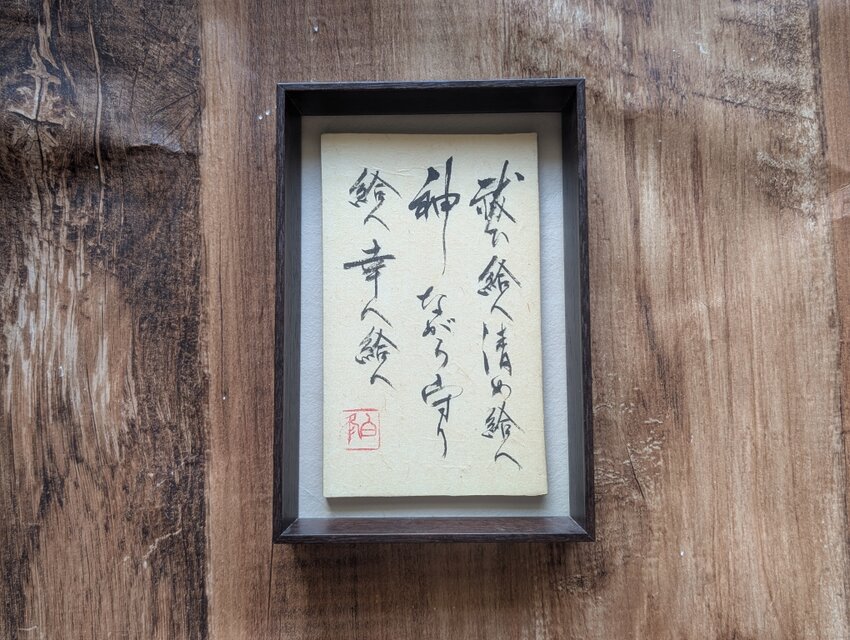 祓ひ給へ清め給へ
神ながら守り
給へ幸へ給へ